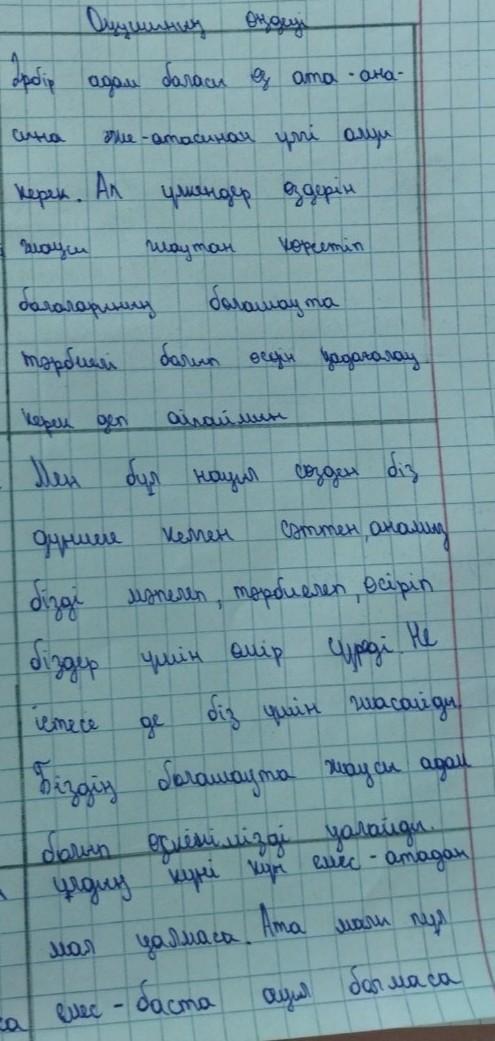 Оқушының өңдеуі
Әрбір адам баласы өз ата-ана-
сына әже-атасынан үлгі алуы
керек. Ал үлкендер өздерін
жақсы жақтан көрсетіп
балаларының болашақта
тәрбиелі болып өсуін қадағалау
керек деп ойлаймын
Мен бұл нақыл сөзден біз
дүниеге келген сәттен, анамыз
бізді мәпелеп, тәрбиелеп, өсіріп
біздер үшін өмір сүреді. Не
істесе де біз үшін жасайды
Біздің болашақта жақсы адам
болып өскенімізді қалайды.
ұлдың күні күн емес-атадан
мал қалмаса. Ата малы пұл
са емес-баста ақыл болмаса